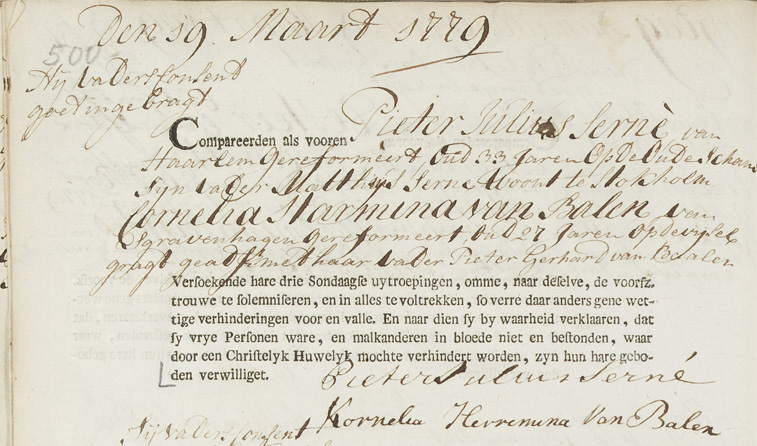 Den 19 Maart 1779
500
Hij vaders Consent
goet ingebragt
Compareerden als vooren Pieter Julius Sernè van
Haarlem Gereformeert, oud 33 Jaren Op De Oude Schans
Sijn vader Matthijs Serne woont te Stokholm
Cornelia Harmina van Balen van
Sgravenhagen Gereformeert, oud 27 Jaren Op de
gragt geads: met haar vader Pieter Gerhard van Baalen
Versoekende hare drie Sondaagse uytroepingen, omme, naar deselve, de voorsz.
trouwe te solemniseren, en in alles te voltrekken, so verre daar anders gene wet-
tige verhinderingen voor en valle. En naar dien sy by waarheid verklaaren, dat
sy vrye Personen ware, en malkanderen in bloede niet en bestonden, waar
door een Christelyk Huwelyk mochte verhindert worden, zyn hun hare gebo-
den verwilliget.
Pieter Julius Serné
Kornelia Herremina Van Balen
Hij vaders Consent